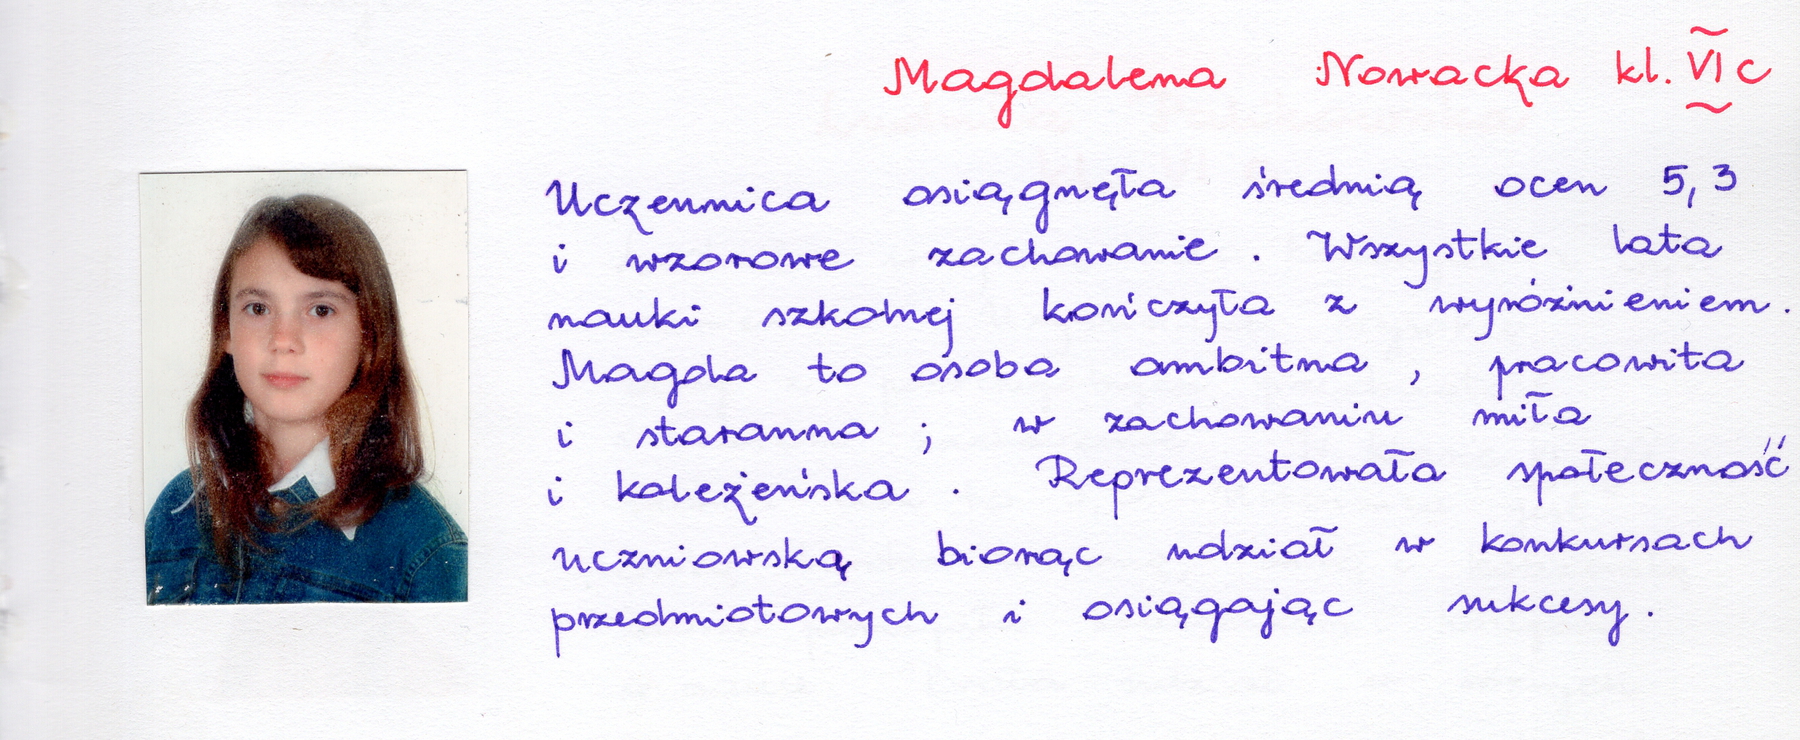 Magdalena Nowacka kl. VI c
Uczennica osiągnęła średnią ocen 5,3
i wzorowe zachowanie. Wszystkie lata
nauki szkolnej kończyła z wyróżnieniem.
Magda to osoba ambitna, pracowita
i staranna; w zachowaniu miła
i koleżeńska. Reprezentowała społeczność
uczniowską biorąc udział w konkursach
przedmiotowych i osiągając sukcesy.